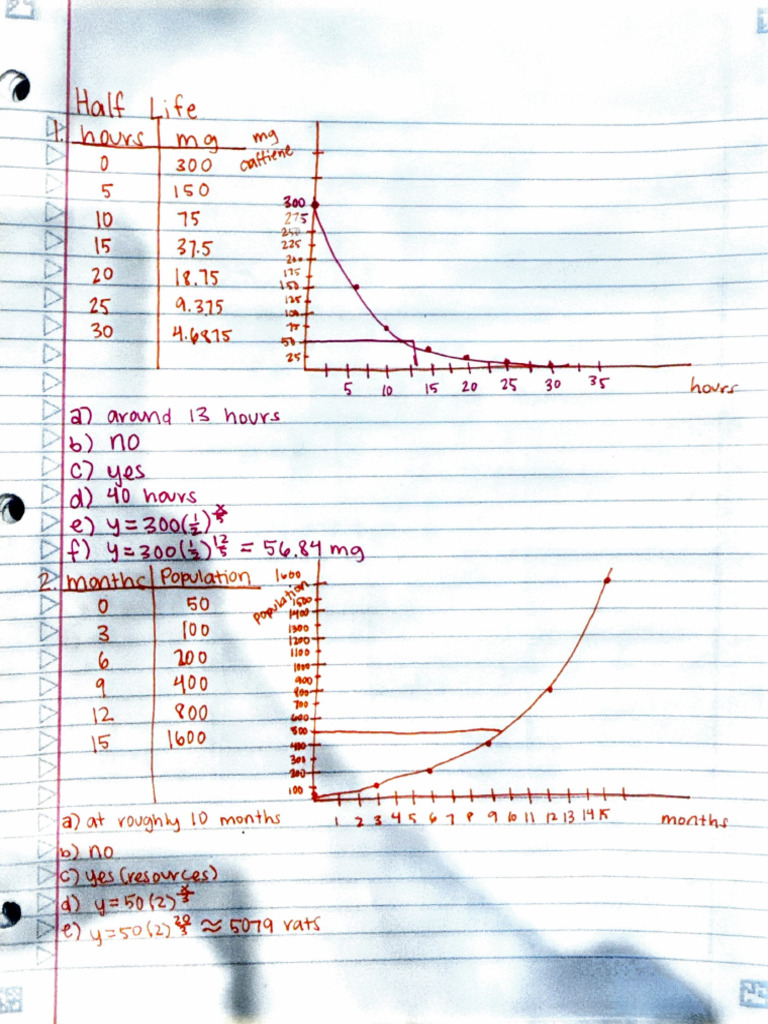 Half Life
1. hours mg
0 300
5 150
10 75
15 37.5
20 18.75
25 9.375
30 4.6875
mg
caffiene
300
275
250
225
200
175
150
125
100
75
50
25
5 10 15 20 25 30 35 hours
a) around 13 hours
b) no
c) yes
d) 40 hours
e) y = 300(1/2)^x/5
f) y = 300(1/2)^12/5 = 56.84 mg
2. months Population
0 50
3 100
6 200
9 400
12 800
15 1600
population
1600
1500
1400
1300
1200
1100
1000
900
800
700
600
500
400
300
200
100
1 2 3 4 5 6 7 8 9 10 11 12 13 14 15 months
a) at roughly 10 months
b) no
c) yes (resources)
d) y = 50(2)^x/3
e) y = 50(2)^20/3 ≈ 5079 rats